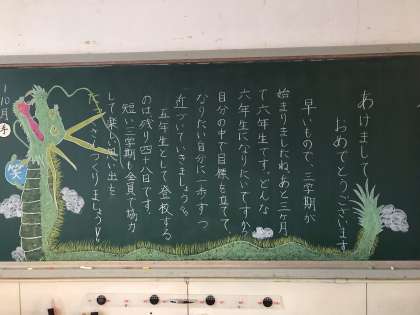 あけまして
おめでとうございます
早いもので、三学期が
始まりましたね。あと三ヶ月
で六年生です。どんな
六年生になりたいですか?
自分の中で目標を立てて、
なりたい自分に一歩ずつ
近づいていきましょう。
五年生として登校する
のは残り四十八日です。
短い三学期も全員で協力
して楽しい思い出を
たくさんつくりましょう!!
1月10
笑